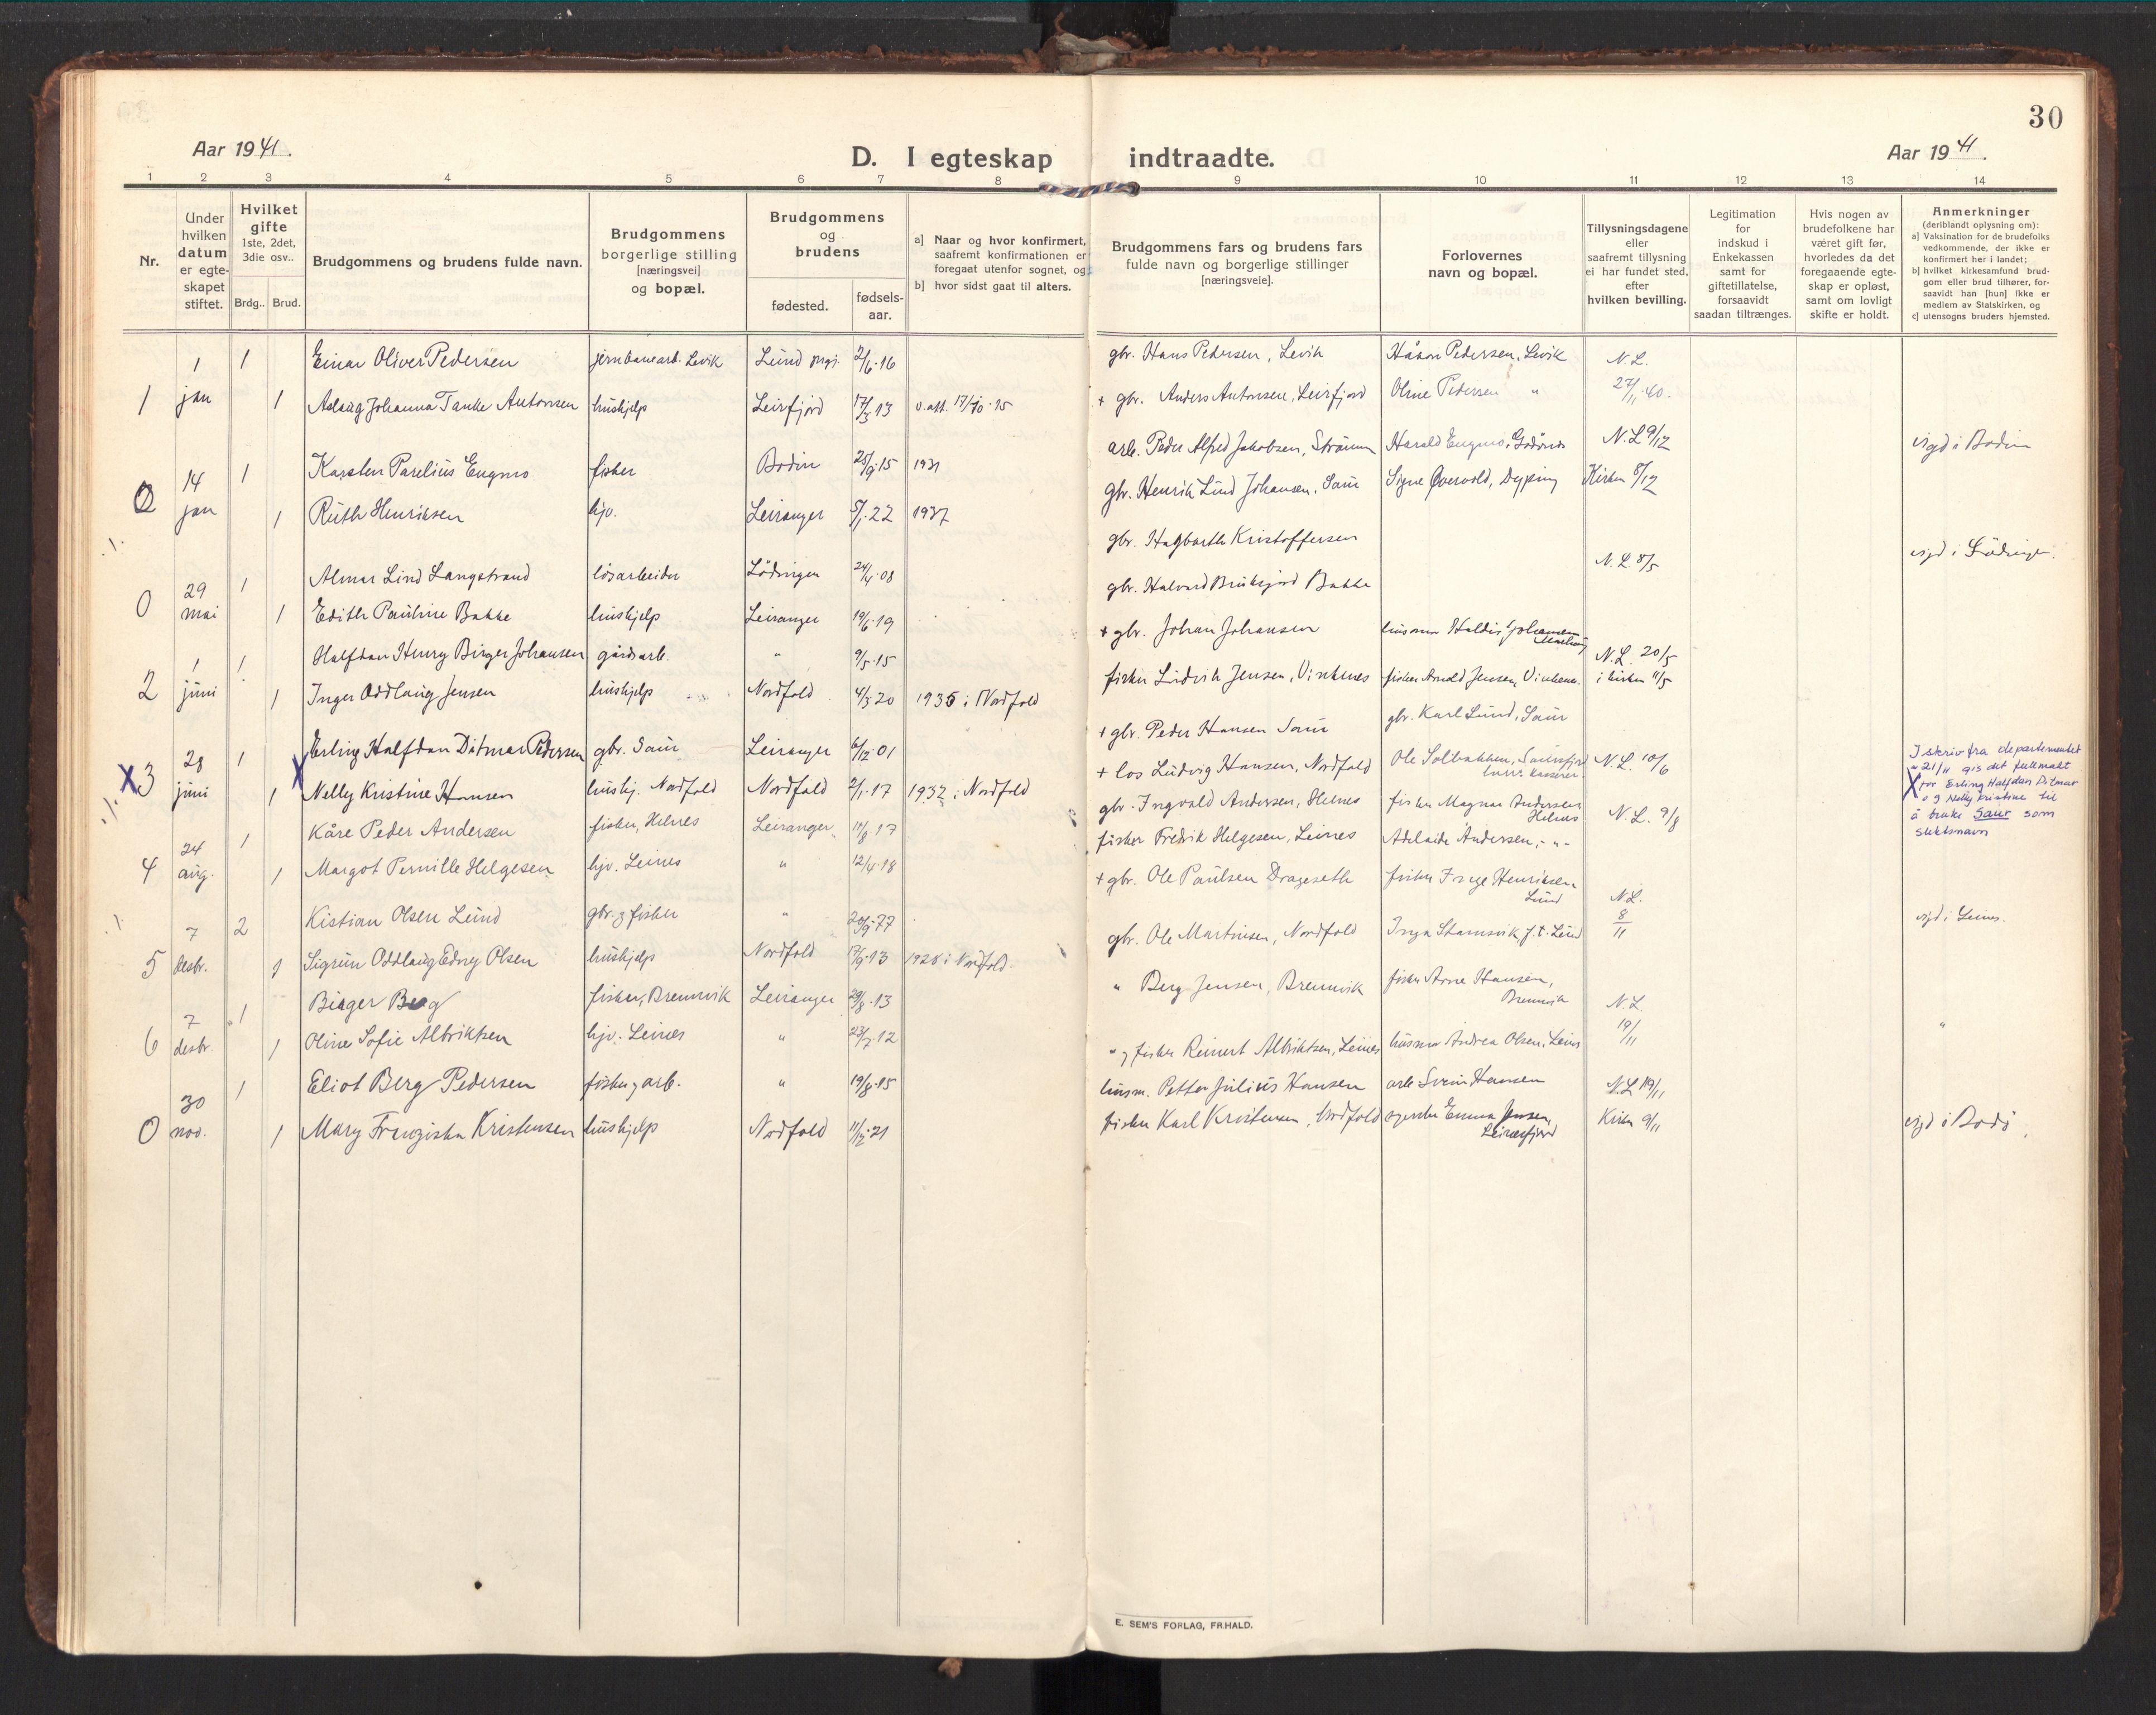 30
Aar 1941.
D. I egteskap indtraadte.
Aar 1941.
1 2 3 4 5 6 7 8 9 10 11 12 13 14
Nr.
Under hvilken datum er egteskapet stiftet.
Hvilket gifte 1ste, 2det, 3die osv..
Brdg.. Brud.
Brudgommens og brudens fulde navn.
Brudgommens borgerlige stilling [næringsvei] og bopæl.
Brudgommens og brudens
fødested. fødsels-aar.
a] Naar og hvor konfirmert, saafremt konfirmationen er foregaat utenfor sognet, og
b] hvor sidst gaat til alters.
Brudgommens fars og brudens fars fulde navn og borgerlige stillinger [næringsveie].
Forlovernes navn og bopæl.
Tillysningsdagene eller saafremt tillysning ei har fundet sted, efter hvilken bevilling.
Legitimation for indskud i Enkekassen samt for giftetillatelse, forsaavidt saadan tiltrænges.
Hvis nogen av brudefolkene har været gift før, hvorledes da det foregaaende egteskap er opløst, samt om lovligt skifte er holdt.
Anmerkninger (deriblandt oplysning om):
a] Vaksination for de brudefolks vedkommende, der ikke er konfirmert her i landet;
b] hvilket kirkesamfund brudgom eller brud tilhører, forsaavidt han [hun] ikke er medlem av Statskirken, og
c] utensogns bruders hjemsted.
1 1 Einar Oliver Pedersen jernbanearb. Levik Lund 2/6.16 gbr. Hans Pedersen, Levik Håkon Pedersen, Levik N.L.
1 jan 1 Aslaug Johanna Tanke Antonsen hushjelp Leirfjord 17/3 13 v.att. 17/10.15 + gbr. Anders Antonsen, Leirfjord Oline Pedersen " 27/11.40.
14 1 Karsten Parelius Engmo fisker Bodin 25/9.15 1931 arb. Peder Alfred Jakobsen, Straumn Harald Engmo, Godønes N.L 9/12 vigd i Bodin
0 jan 1 Ruth Henriksen hjv. Leiranger 5/1.22 1937 gbr. Henrik Lund Johansen, Saur Signe Øvervold, Dypping Kirken 8/12
29 1 Almar Lind Langstrand løsarbeider Lödingen 24/4.08 gbr. Hagbarth Kristoffersen N.L. 8/5 vigd i Lödingen.
0 mai 1 Edith Pauline Bakke hushjelp Leiranger 19/6.19 gbr. Halvard Bruksjord Bakke
1 1 Halfdan Henry Birger Johansen gårdsarb. " 9/5.15 + gbr. Johan Johansen husmor Haldis Johansen N.L. 20/5
2 juni 1 Inger Oddlaug Jensen hushjelp Nordfold 4/3 20 1935 i Nordfold fisker Ludvik Jensen, Vinkenes fisker Arnold Jensen, Vinkenes i kirken 11/5
28 1 Erling Halfdan Ditmar Pedersen gbr. Saur Leiranger 6/12.01 + gbr. Peder Hansen Saur gbr. Karl Lund, Saur
X 3 juni X 1 Nelly Kristine Hansen hushj. Nordfold Nordfold 2/1.17 1932 i Nordfold + los Ludvig Hansen, Nordfold Ole Solbakken, Saursfjord N.L. 10/6
I skriv fra departementet
21/11 gis det fullmakt
X for Erling Halfdan Ditmar
og Nelly Kristine til
å bruke Saur som
slektsnavn
24 1 Kåre Peder Andersen fisker, Helnes Leiranger 11/8 17 gbr. Ingvald Andersen, Helnes fisker Magnar Andersen Helnes N.L. 9/8
4 aug. 1 Margot Pernille Helgesen hjv. Leines " 12/4.18 fisker Fredrik Helgesen, Leines Adelaide Andersen, - " -
7 2 Kistian Olsen Lund gbr. og fisker " 20/9.77 + gbr. Ole Paulsen Drageseth fisker Inge Henriksen Lund N.L. vigd i Leines.
5 desbr. 1 Sigrun Oddlaug Edny Olsen hushjelp Nordfold 17/9.13 1928 i Nordfold. gbr. Ole Martinsen, Nordfold Inga Stamsvik, f.t. Lund 8/11
7 1 Birger Berg fisker, Brennvik Leiranger 29/8.13 " Berg Jensen, Brennvik fisker Arne Hansen, Brennvik N.L.
6 desbr. 1 Oline Sofie Albriktsen hjv. Leines " 23/7.12 " og fisker Reinert Albriktsen, Leines husmor Andrea Olsen, Leines 19/11 "
30 1 Eliot Berg Pedersen fisker og arb. " 19/8.15 husm. Petter Julius Hansen arb Svein Hansen N.L 19/11
0 nov. 1 Mary Fransiska Kristensen hushjelp Nordfold 11/12.21 fisker Karl Kristensen, Nordfold Emma Jensen, Leinesfjord Kirken 9/11 vigd i Bodø
E. SEM'S FORLAG, FR.HALD.